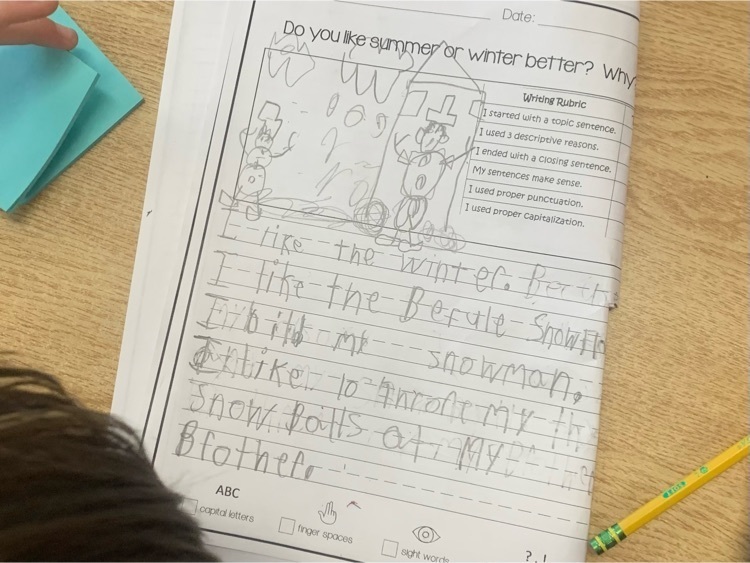 Date:
Do you like summer or winter better? Why
Writing Rubric
I started with a topic sentence.
I used 3 descriptive reasons.
I ended with a closing sentence.
My sentences make sense.
I used proper punctuation.
I used proper capitalization.
I like the winter.
I like the Berule Snowfl
I bild my snowman.
I like to throne My
Snow Balls at My
Brother.
ABC
capital letters
finger spaces
sight words
? . !